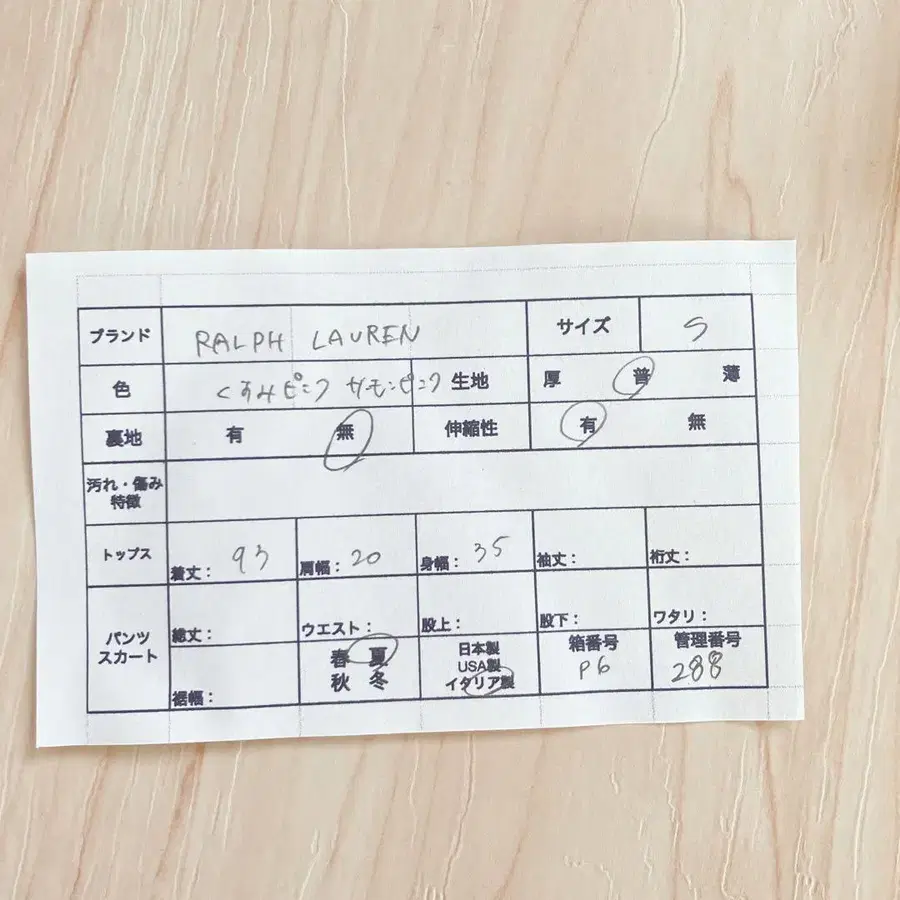 ブランド RALPH LAUREN サイズ S
色 くすみピンク サーモンピンク 生地 厚 普 薄
裏地 有 無 伸縮性 有 無
汚れ・傷み
特徴
トップス 着丈: 93 肩幅: 20 身幅: 35 袖丈: 裄丈:
パンツ
スカート
総丈: ウエスト: 股上: 股下: ワタリ:
裾幅:
春 夏
秋 冬
日本製
USA製
イタリア製
箱番号
P6
管理番号
288